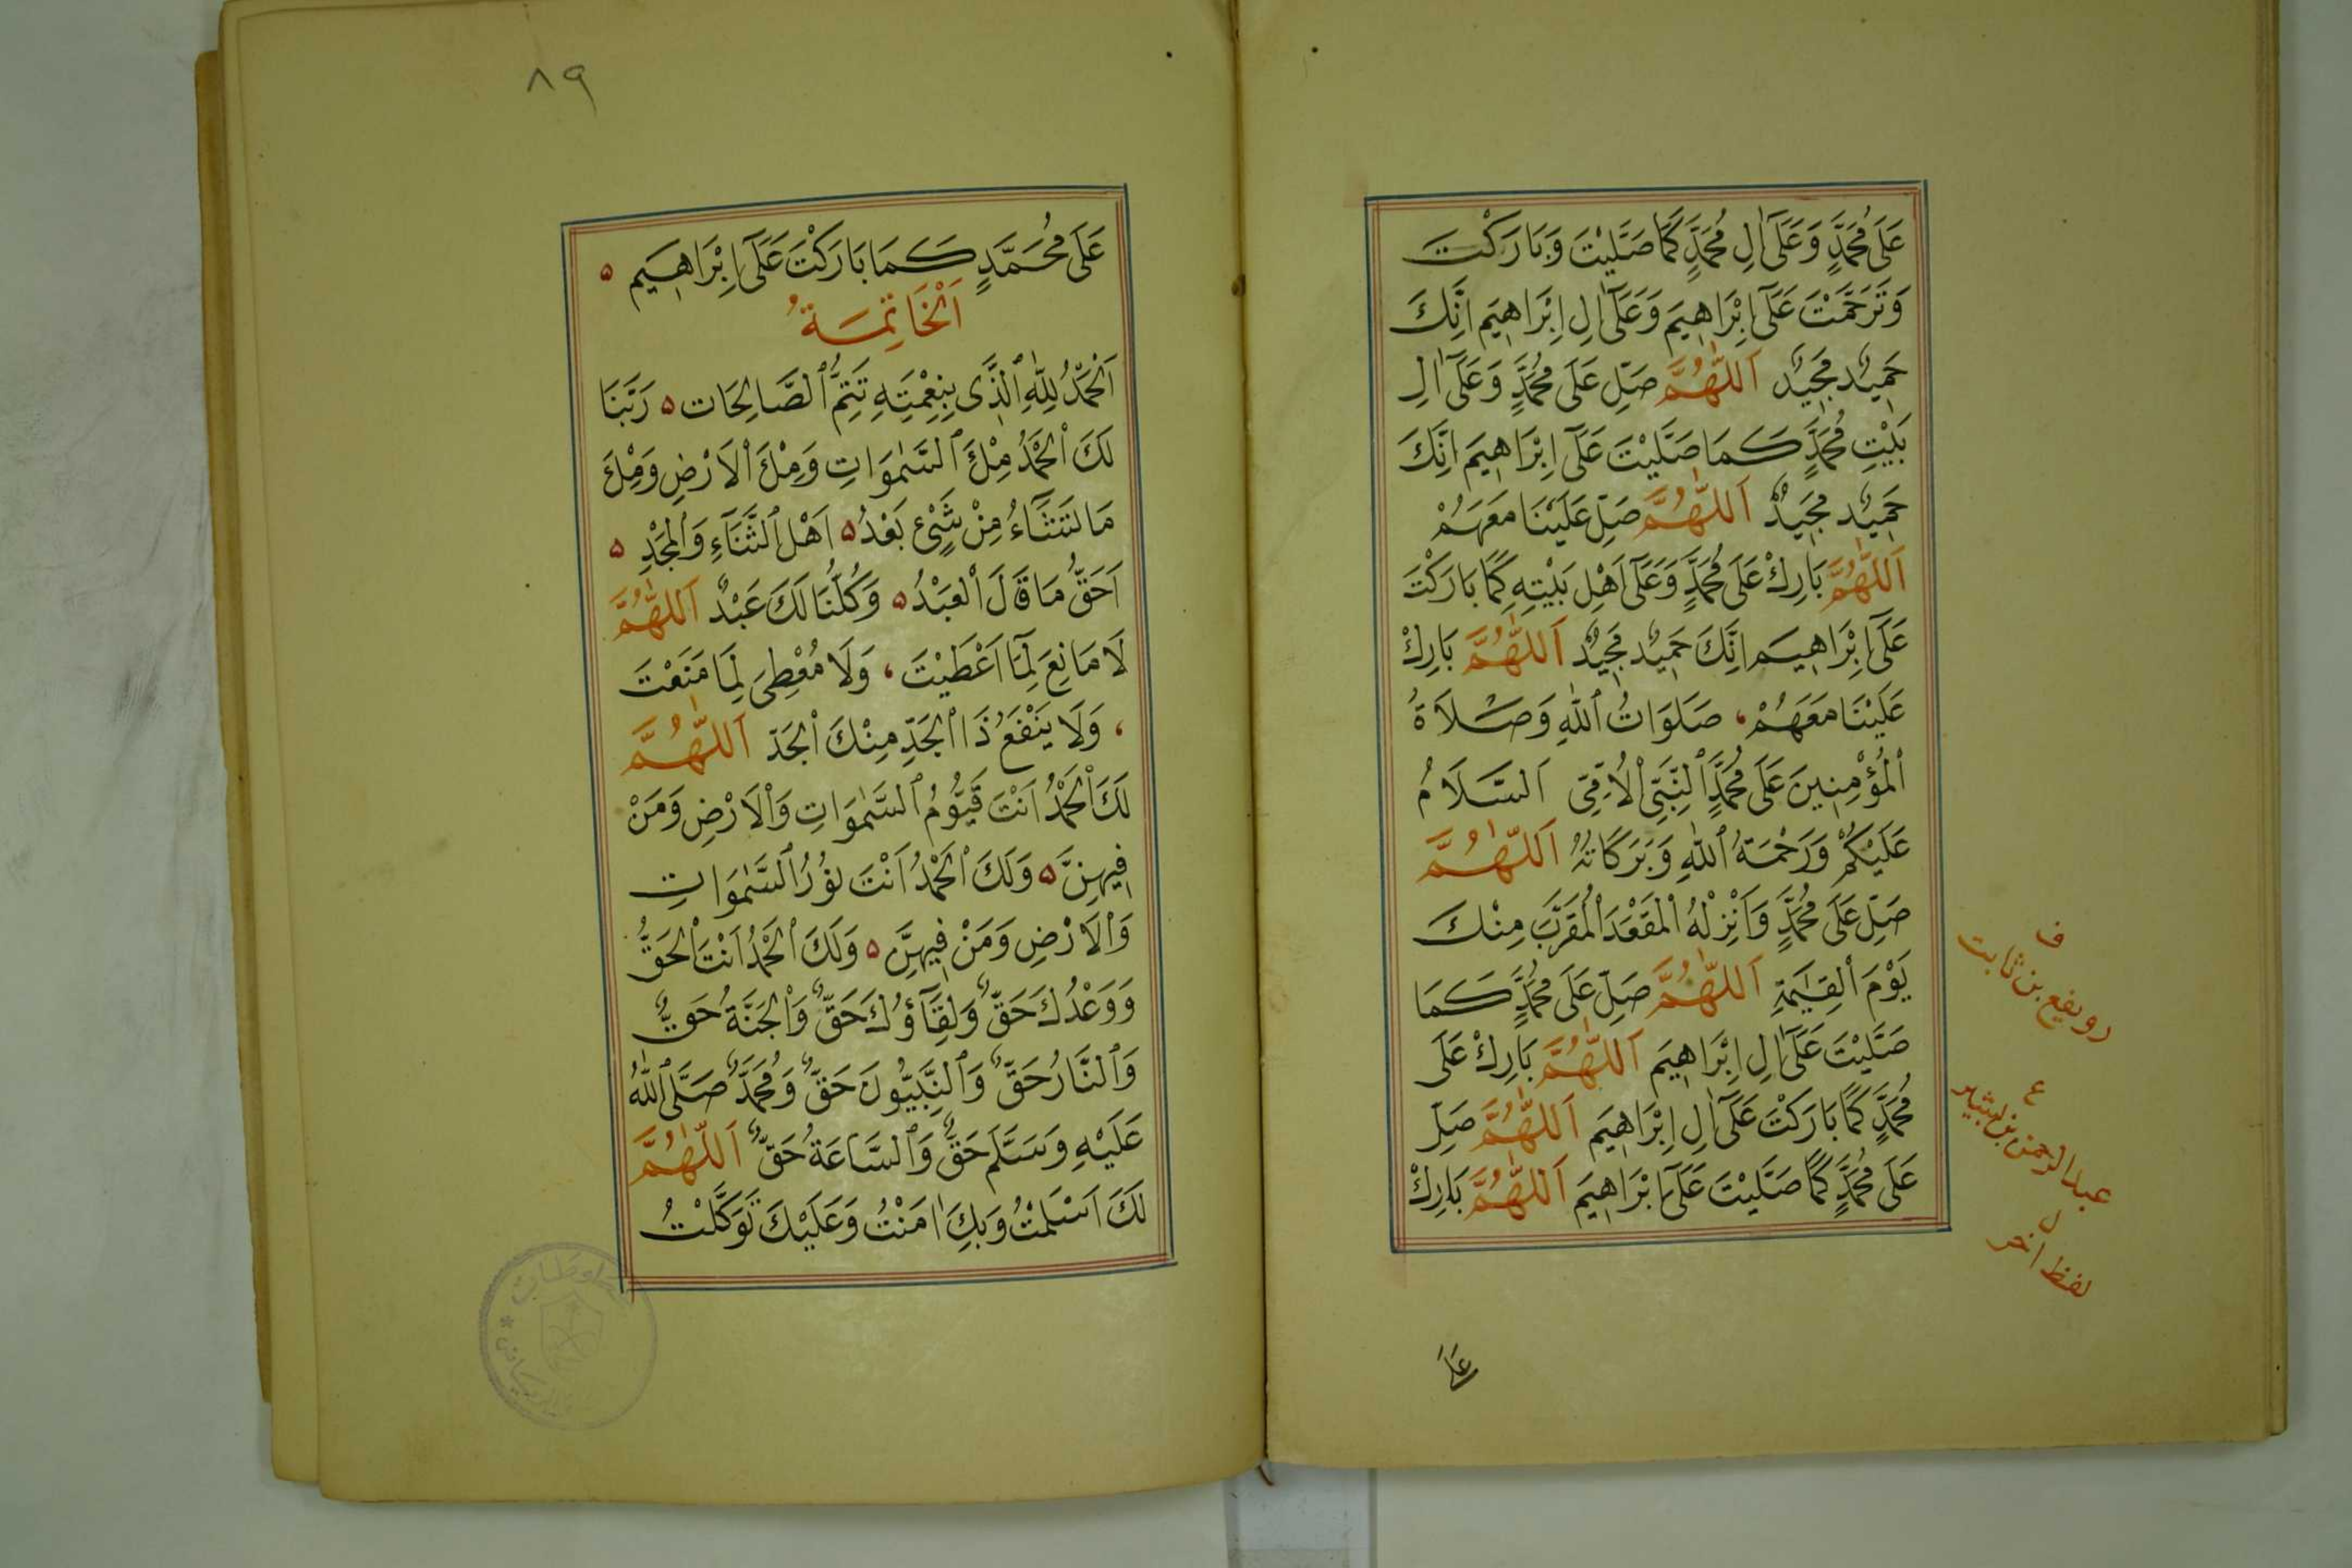 عَلَى مُحَمَّدٍ وَعَلَى اٰلِ مُحَمَّدٍ كَمَا صَلَّيْتَ وَبَارَكْتَ
وَتَرَحَّمْتَ عَلَى اِبْرَاهِيمَ وَعَلَى اٰلِ اِبْرَاهِيمَ اِنَّكَ
حَمِيدٌ مَجِيدٌ اَللّٰهُمَّ صَلِّ عَلَى مُحَمَّدٍ وَعَلَى اٰلِ
بَيْتِ مُحَمَّدٍ كَمَا صَلَّيْتَ عَلَى اِبْرَاهِيمَ اِنَّكَ
حَمِيدٌ مَجِيدٌ اَللّٰهُمَّ صَلِّ عَلَيْنَا مَعَهُمْ
اَللّٰهُمَّ بَارِكْ عَلَى مُحَمَّدٍ وَعَلَى اَهْلِ بَيْتِهِ كَمَا بَارَكْتَ
عَلَى اِبْرَاهِيمَ اِنَّكَ حَمِيدٌ مَجِيدٌ اَللّٰهُمَّ بَارِكْ
عَلَيْنَا مَعَهُمْ، صَلَوَاتُ ٱللّٰهِ وَصَلَاةُ
ٱلْمُؤْمِنِينَ عَلَى مُحَمَّدٍ ٱلنَّبِيِّ ٱلْاُمِّيِّ اَلسَّلَامُ
عَلَيْكُمْ وَرَحْمَةُ ٱللّٰهِ وَبَرَكَاتُهُ اَللّٰهُمَّ
صَلِّ عَلَى مُحَمَّدٍ وَاَنْزِلْهُ ٱلْمَقْعَدَ ٱلْمُقَرَّبَ مِنْكَ
يَوْمَ ٱلْقِيٰمَةِ اَللّٰهُمَّ صَلِّ عَلَى مُحَمَّدٍ كَمَا
صَلَّيْتَ عَلَى اٰلِ اِبْرَاهِيمَ اَللّٰهُمَّ بَارِكْ عَلَى
مُحَمَّدٍ كَمَا بَارَكْتَ عَلَى اٰلِ اِبْرَاهِيمَ اَللّٰهُمَّ صَلِّ
عَلَى مُحَمَّدٍ كَمَا صَلَّيْتَ عَلَى اِبْرَاهِيمَ اَللّٰهُمَّ بَارِكْ
ف
رويفع بن ثابت
ع
عبد الرحمن بن بشير
ل
لفظ اخر
عَلَى
٨٩
عَلَى مُحَمَّدٍ كَمَا بَارَكْتَ عَلَى اِبْرَاهِيمَ ۵
اَلْخَاتِمَةُ
اَلْحَمْدُ لِلّٰهِ ٱلَّذِي بِنِعْمَتِهِ تَتِمُّ ٱلصَّالِحَات ۵ رَبَّنَا
لَكَ ٱلْحَمْدُ مِلْءَ ٱلسَّمٰوَاتِ وَمِلْءَ ٱلْاَرْضِ وَمِلْءَ
مَا تَشَاءُ مِنْ شَيْءٍ بَعْدُ ۵ اَهْلَ ٱلثَّنَاءِ وَٱلْمَجْدِ ۵
اَحَقُّ مَا قَالَ ٱلْعَبْدُ ۵ وَكُلُّنَا لَكَ عَبْدٌ اَللّٰهُمَّ
لَا مَانِعَ لِمَا اَعْطَيْتَ، وَلَا مُعْطِيَ لِمَا مَنَعْتَ
، وَلَا يَنْفَعُ ذَا ٱلْجَدِّ مِنْكَ ٱلْجَدّ اَللّٰهُمَّ
لَكَ ٱلْحَمْدُ اَنْتَ قَيُّومُ ٱلسَّمٰوَاتِ وَٱلْاَرْضِ وَمَنْ
فِيهِنَّ ۵ وَلَكَ ٱلْحَمْدُ اَنْتَ نُورُ ٱلسَّمٰوَاتِ
وَٱلْاَرْضِ وَمَنْ فِيهِنَّ ۵ وَلَكَ ٱلْحَمْدُ اَنْتَ ٱلْحَقُّ
وَوَعْدُكَ حَقٌّ وَلِقَاؤُكَ حَقٌّ وَٱلْجَنَّةُ حَقٌّ
وَٱلنَّارُ حَقٌّ وَٱلنَّبِيُّونَ حَقٌّ وَمُحَمَّدٌ صَلَّى ٱللّٰهُ
عَلَيْهِ وَسَلَّمَ حَقٌّ وَٱلسَّاعَةُ حَقٌّ اَللّٰهُمَّ
لَكَ اَسْلَمْتُ وَبِكَ اٰمَنْتُ وَعَلَيْكَ تَوَكَّلْتُ